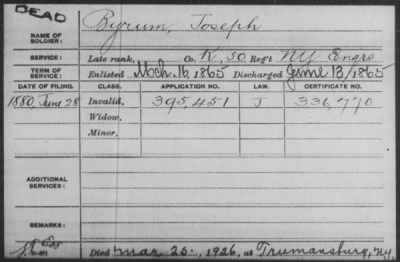 DEAD
NAME OF SOLDIER: Byrum, Joseph
SERVICE: Late rank, Co. K, 50 Reg't NY Engrs
TERM OF SERVICE: Enlisted Mch. 16, 1865 Discharged June 13, 1865
DATE OF FILING. CLASS. APPLICATION NO. LAW. CERTIFICATE NO.
1880, June 28 Invalid, 395,451 J 336,770
Widow,
Minor,
ADDITIONAL SERVICES:
REMARKS:
Died Mar. 25, 1926, at Trumansburg, N.Y.